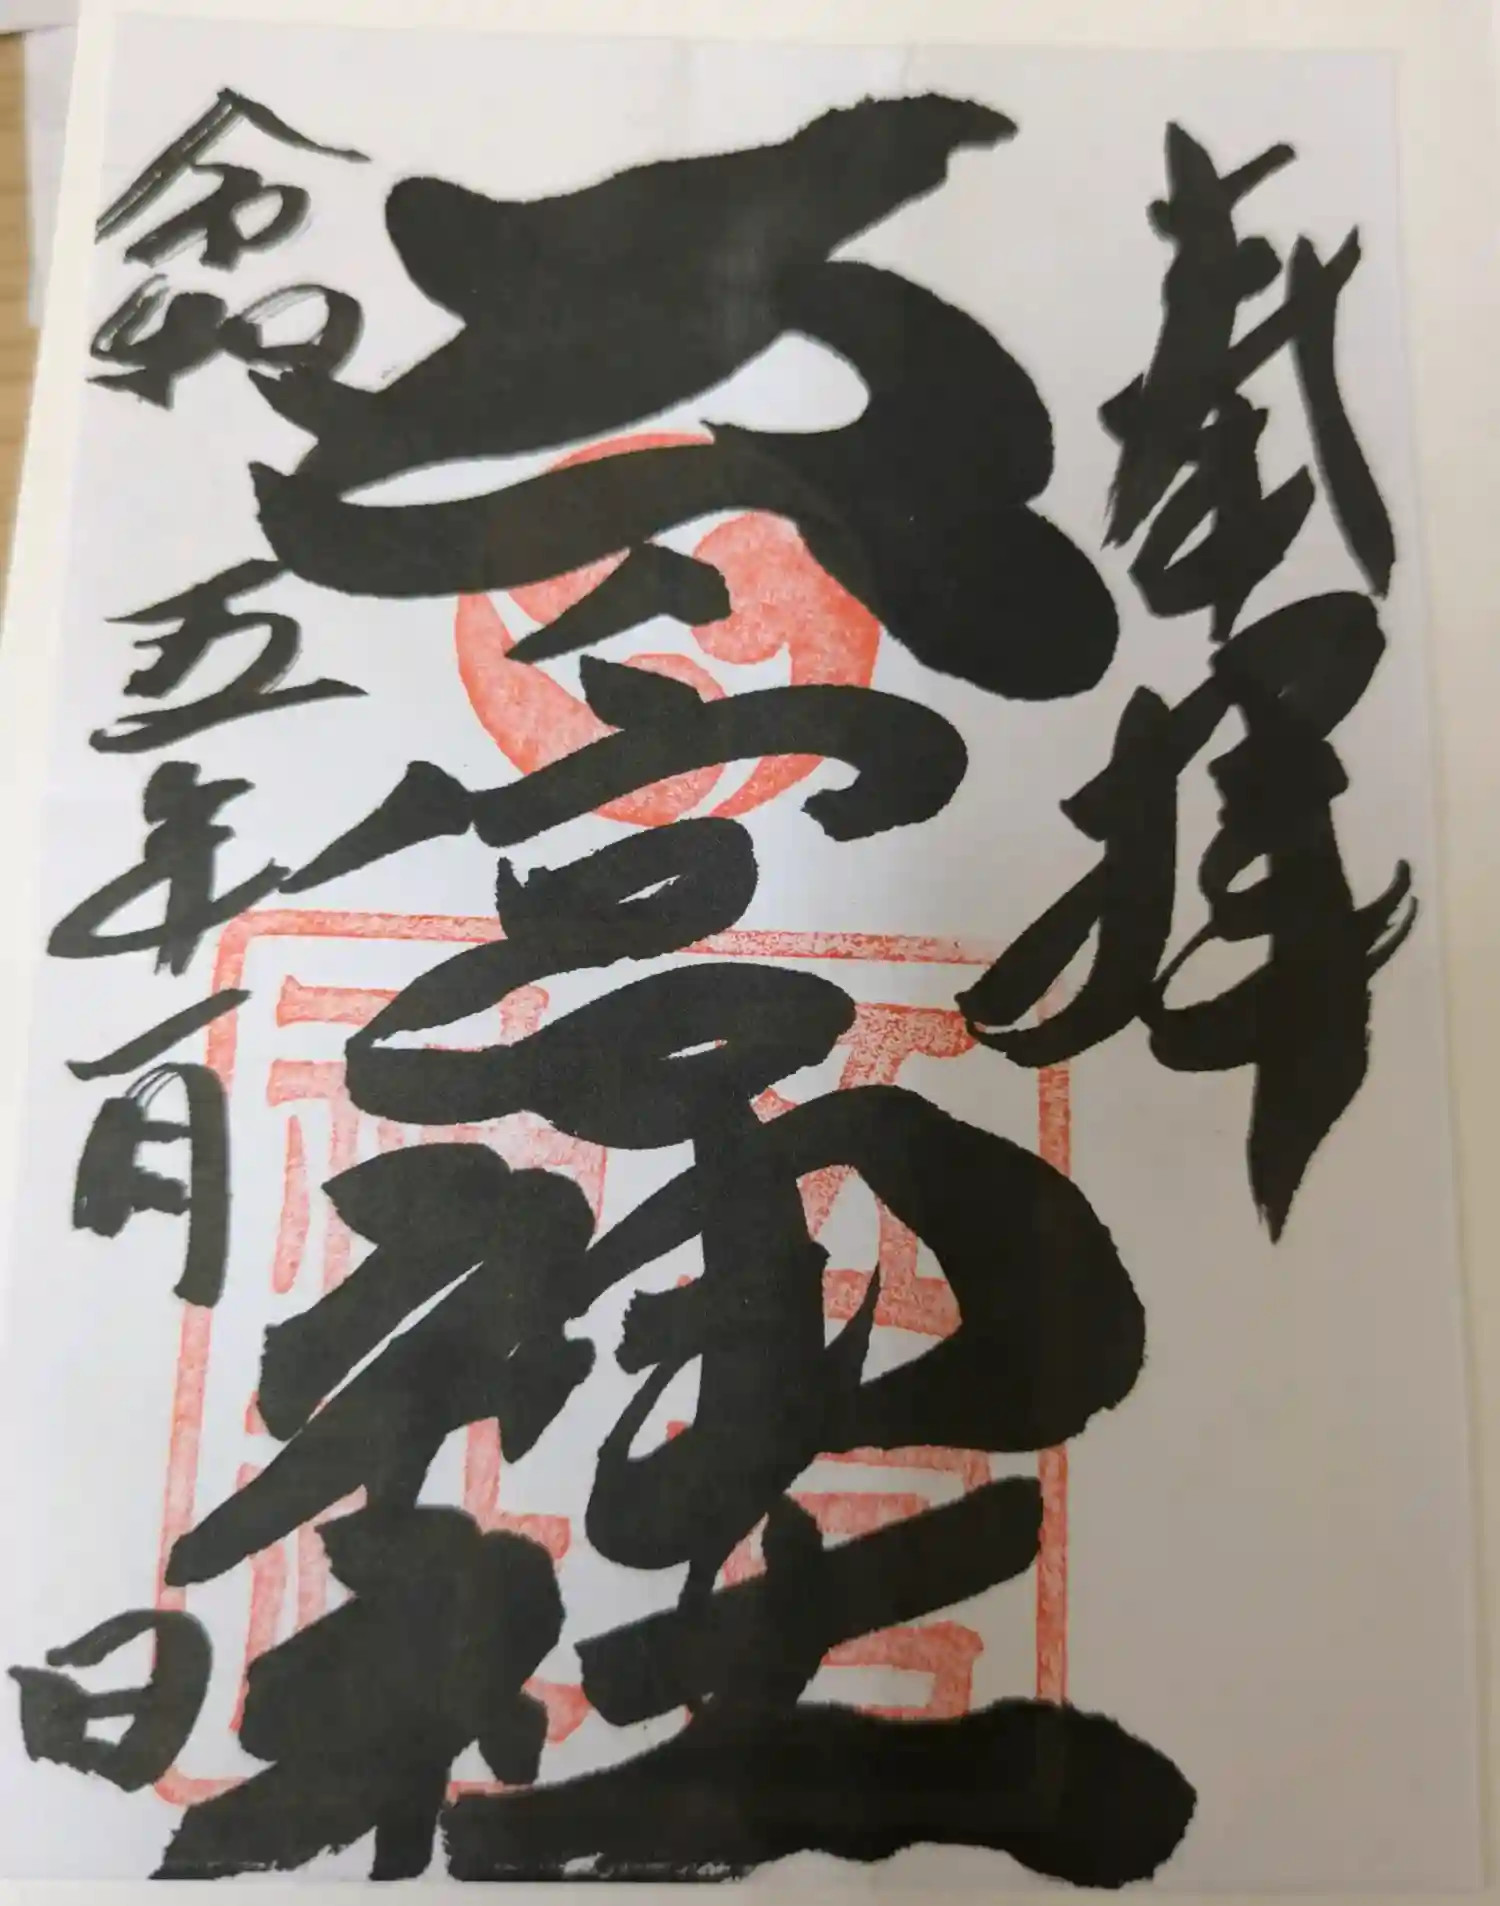 奉拝
五宮神社
令和五年一月 日